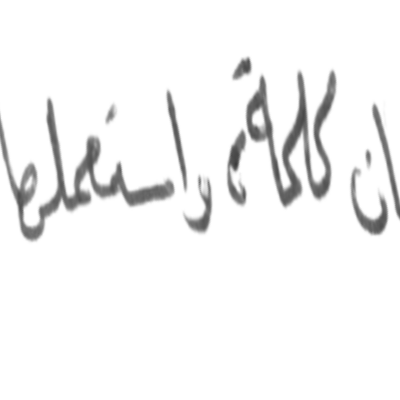 ان كلمة واستعملها